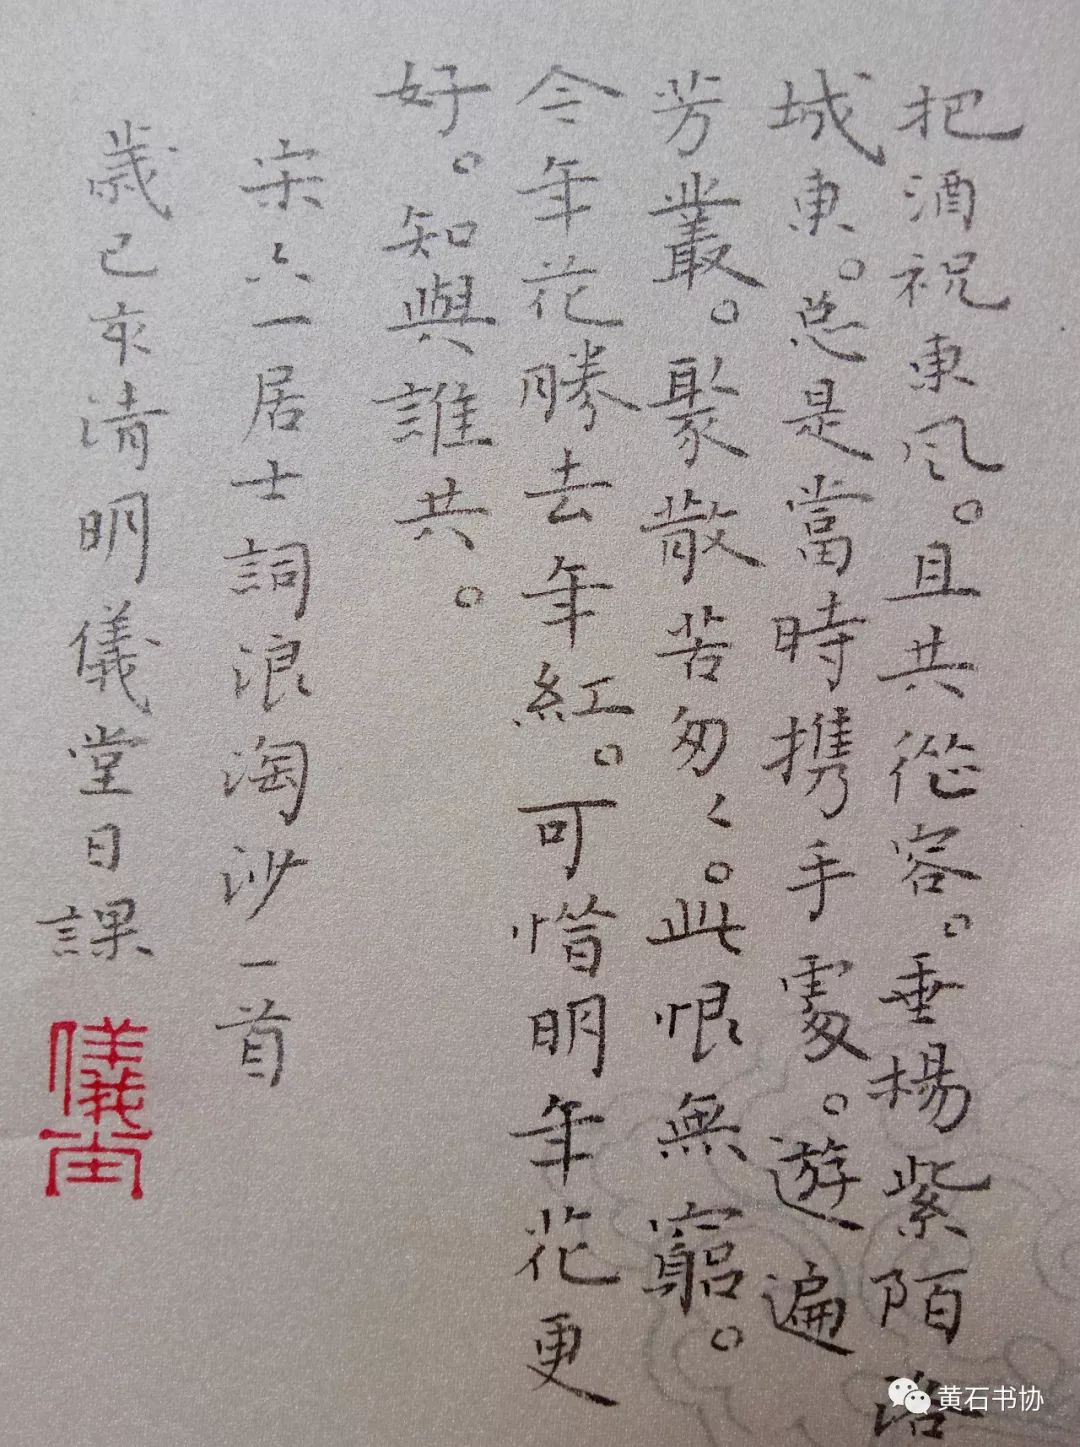 把酒祝東风。且共從容。垂楊紫陌洛
城東。总是當時携手處。遊遍
芳叢。聚散苦匆々。此恨無窮。
今年花勝去年紅。可惜明年花更
好。知與誰共。
宋六一居士詞浪淘沙一首
歲己亥清明儀堂日課
儀堂
黄石书协